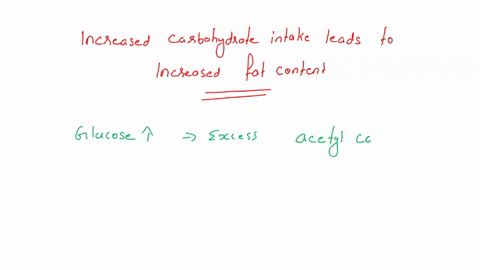 Increased carbohydrate intake leads to
Increased fat content
Glucose ↑ ⇒ Excess acetyl co